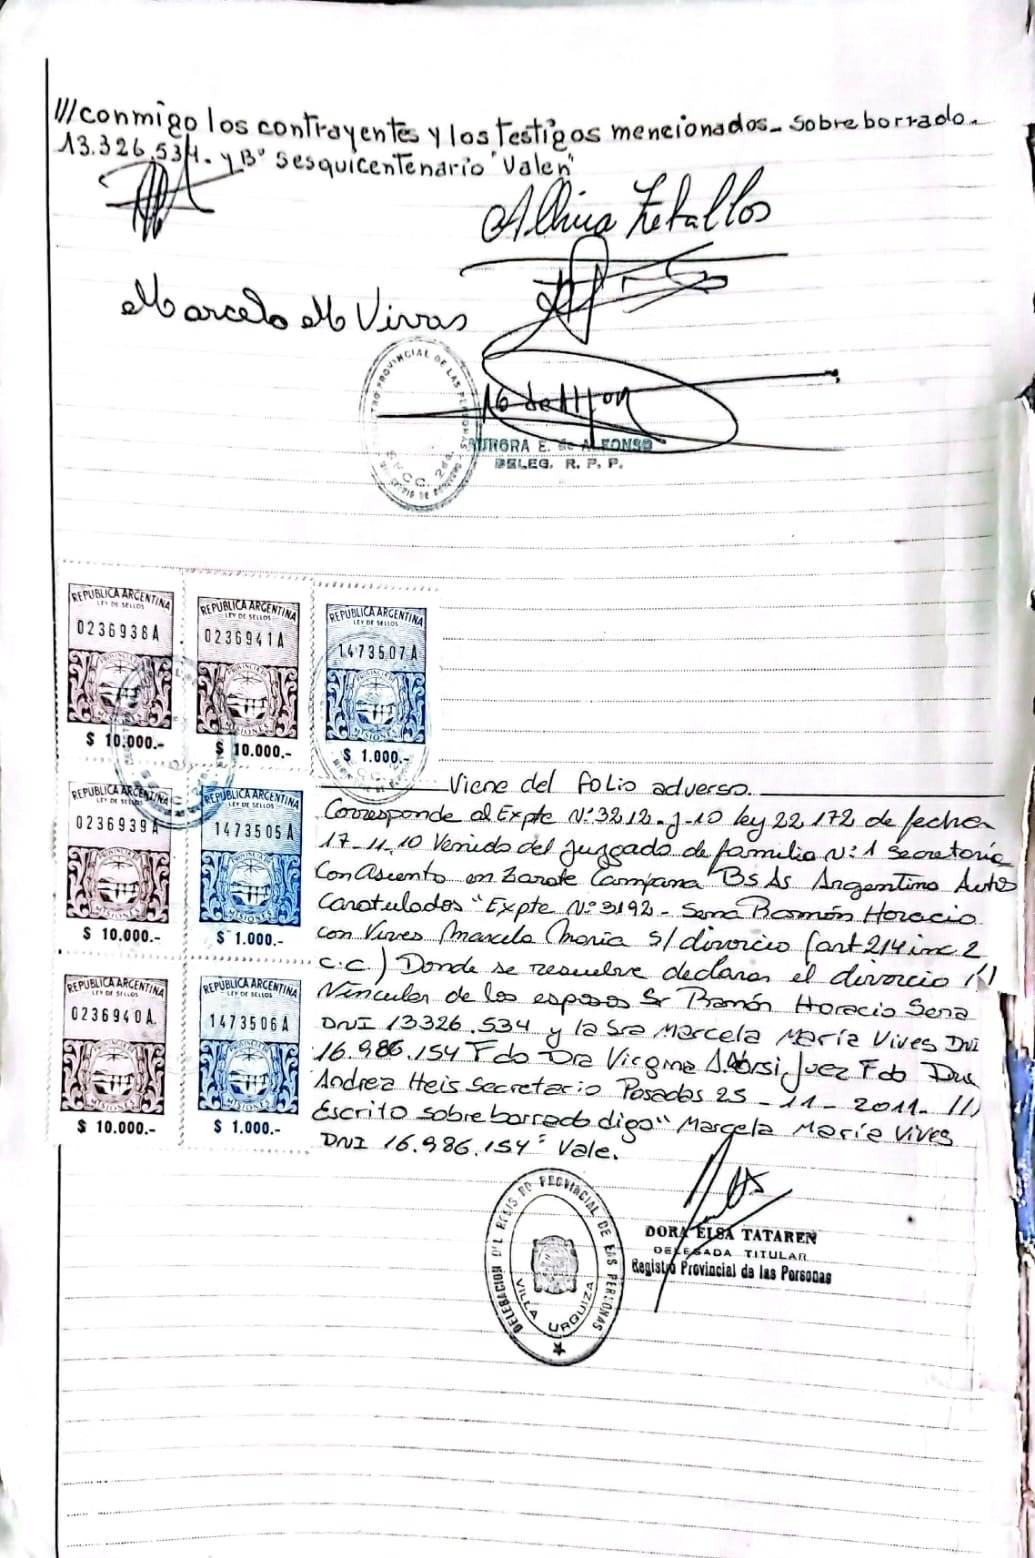 ///conmigo los contrayentes y los testigos mencionados_ sobreborrado._
13.326.534. y B° Sesquicentenario "Valen"
Marcelo M Vivas
AURORA E. de ALFONSO
DELEG. R. P. P.
REPUBLICA ARGENTINA
LEY DE SELLOS
0236938A
MISIONES
$ 10.000.-
REPUBLICA ARGENTINA
LEY DE SELLOS
0236941A
MISIONES
$ 10.000.-
REPUBLICA ARGENTINA
LEY DE SELLOS
1473507A
MISIONES
$ 1.000.-
REPUBLICA ARGENTINA
LEY DE SELLOS
0236939A
MISIONES
$ 10.000.-
REPUBLICA ARGENTINA
LEY DE SELLOS
1473505A
MISIONES
$ 1.000.-
REPUBLICA ARGENTINA
LEY DE SELLOS
0236940A.
MISIONES
$ 10.000.-
REPUBLICA ARGENTINA
LEY DE SELLOS
1473506A
MISIONES
$ 1.000.-
Viene del folio adverso.
Corresponde al Expte N°:3212-J-10 ley 22.172 de fecha
17-11-10 Venido del Juzgado de familia N°:1 Secretaria
Con Asiento en Zarate Campana Bs As Argentina Autos
Caratulados "Expte N°:3192- Sena Ramón Horacio
con Vives Marcela Maria S/ divorcio (art 214 inc 2
c.c.) Donde se resuelve declarar el divorcio //
Vincular de los esposos Sr Ramón Horacio Sena
DNI 13326.534 y la Sra Marcela María Vives DNI
16.986.154 Fdo Dra Juez Fdo Dra
Andrea Heis Secretario Posadas 25-11-2011- //
Escrito sobreborrado digo "Marcela María Vives
DNI 16.986.154" Vale.
DELEGACION DEL REGISTRO PROVINCIAL DE LAS PERSONAS
VILLA URQUIZA
DORA ELSA TATAREN
DELEGADA TITULAR
Registro Provincial de las Personas